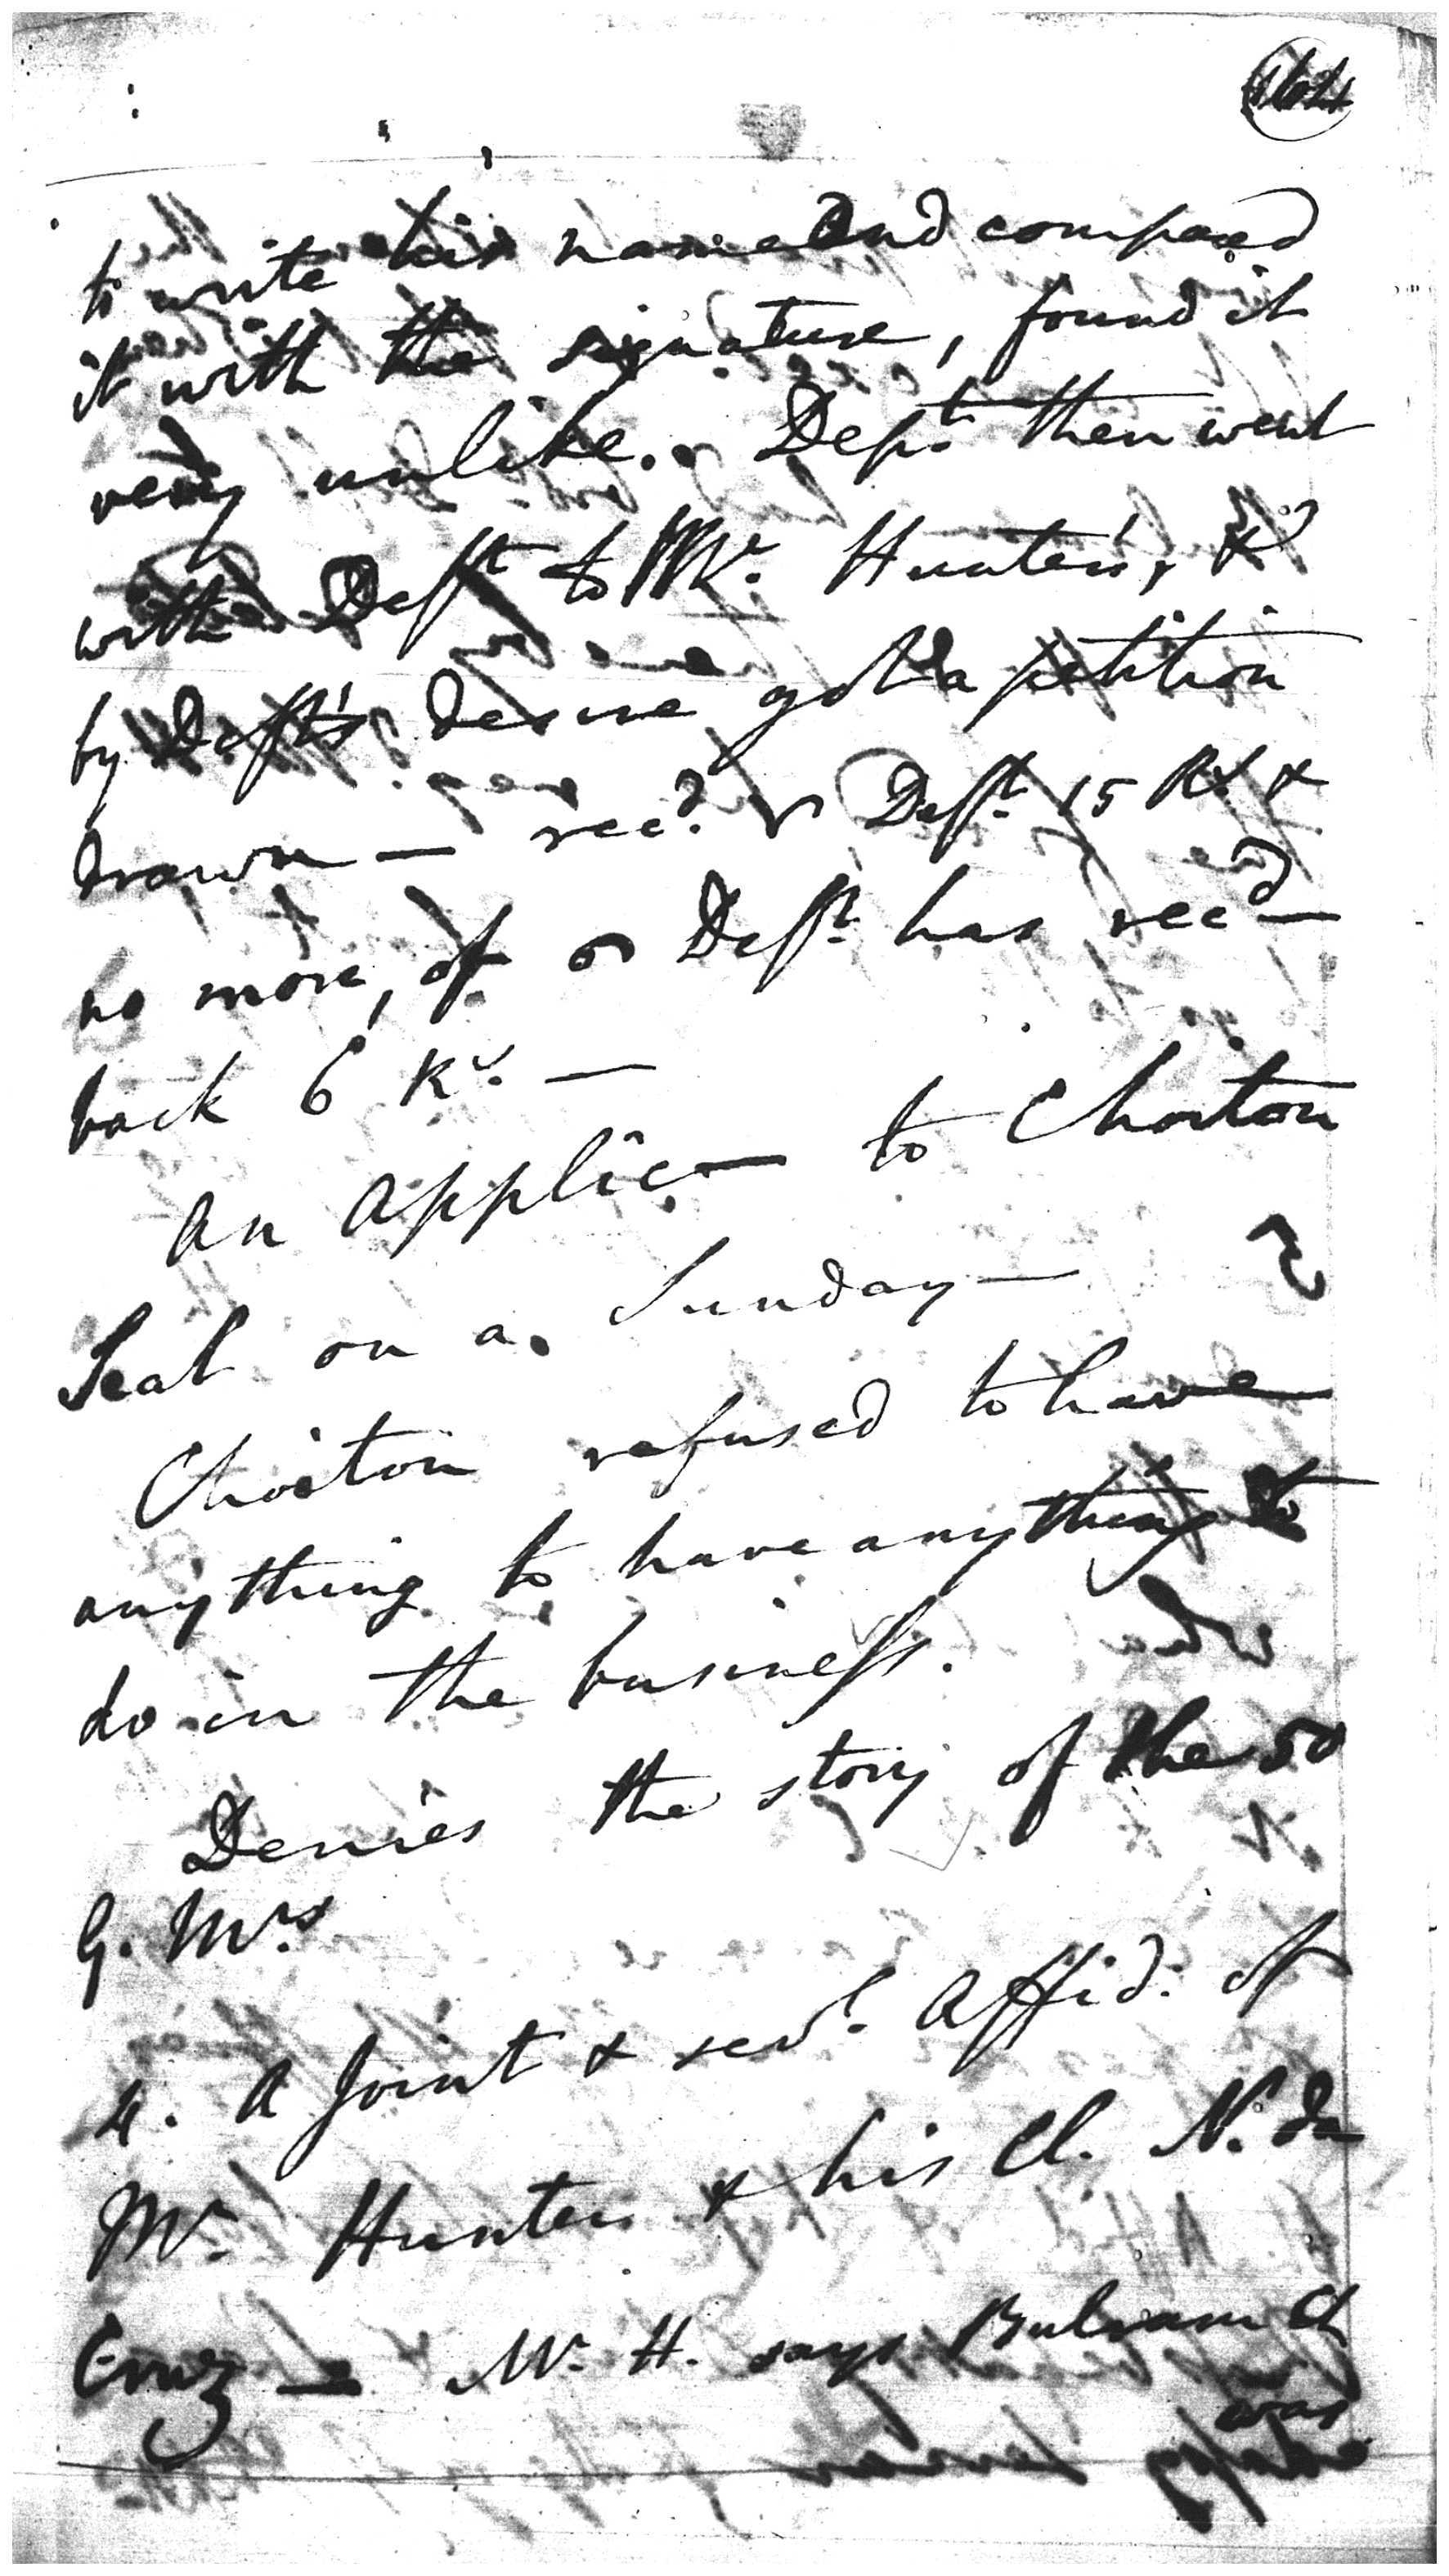 to write his name and compared
it with the signature, found it
very unlike. Dept. then went
with Deft to Mr. Hunter's, &
by Deft's desire got a petition
drawn — recd. Deft. 15 Rs. &
no more, of Deft. has recd —
back 6 Rs. —
An applic— to Choiton
Seat on a Sunday —
Choiton refused to have
anything to have anything to
do in the business.
Denies the story of the 50
G. Mrs.
4. A Joint & sevl. Affid. of
Mr. Hunter & his Cl. N. da
Cruz — Mr. H. says Bulram Ct
was